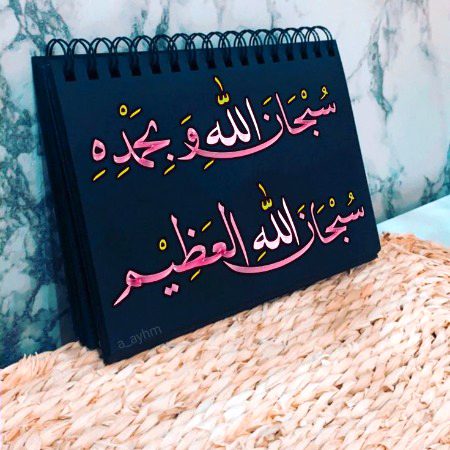 سُبْحَانَ اللّٰهِ وَ بِحَمْدِهِ
سُبْحَانَ اللّٰهِ العَظِيْم
a_ayhm